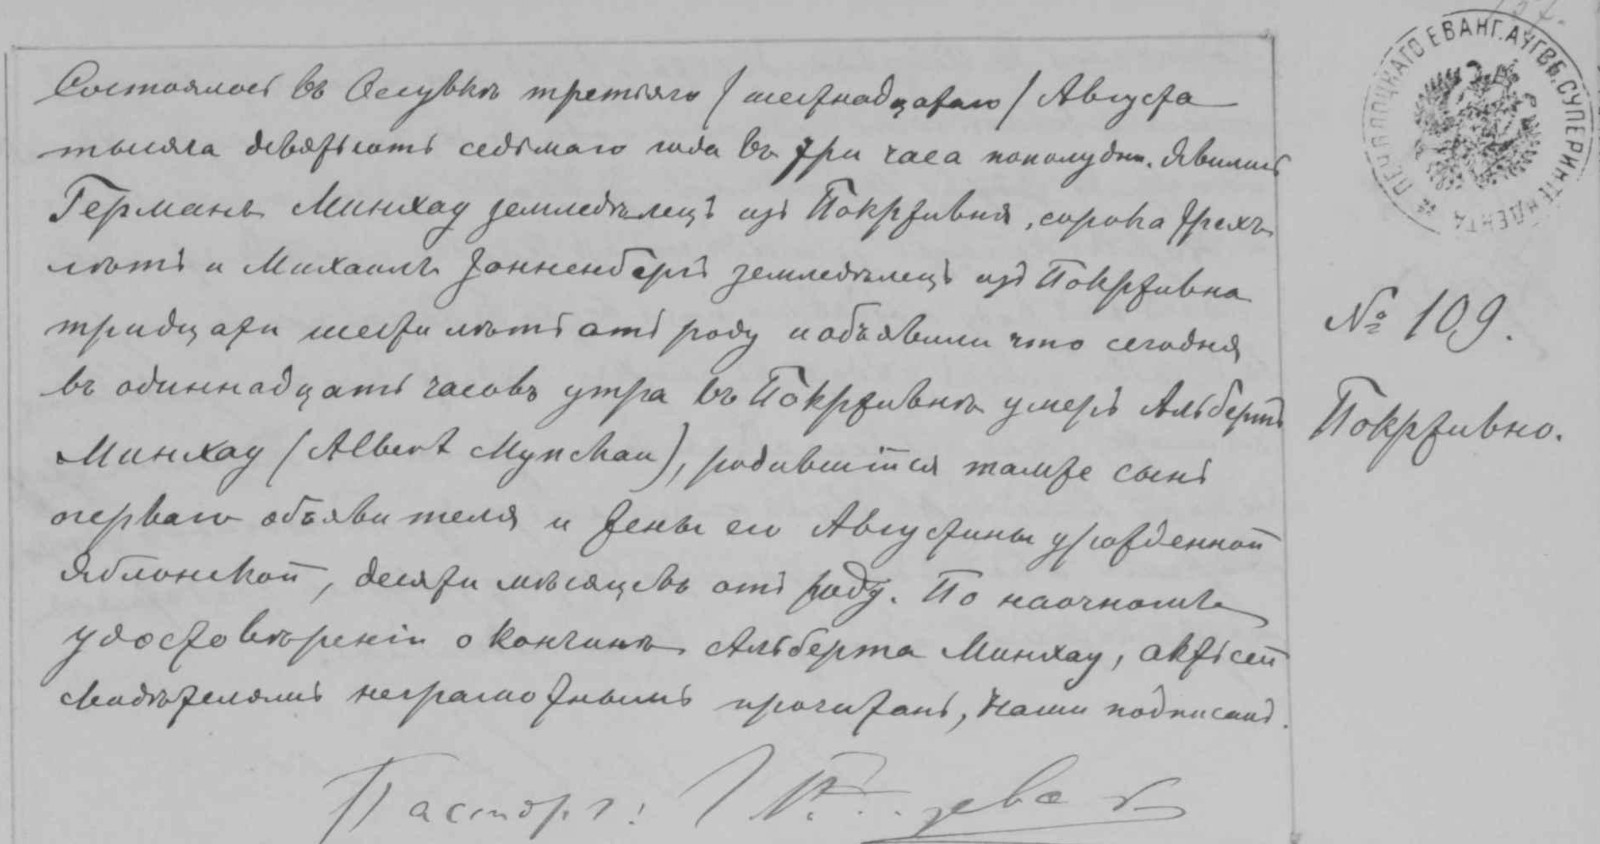 Состоялось въ Осувкѣ третьяго /шестнадцатаго/ Августа
тысяча девятьсотъ седьмаго года въ три часа пополудни. Явились
Германъ Минхау земледѣлецъ изъ Покрживна, сорока трехъ
лѣтъ и Михаилъ Зонненбергъ земледѣлецъ изъ Покрживна
тридцати шести лѣтъ отъ роду и объявили что сегодня
въ одиннадцать часовъ утра въ Покрживнѣ умеръ Альбертъ
Минхау (Albert Mynchau), родившійся тамже сынъ
перваго объявителя и жены его Августины урожденной
Яблонской, десяти мѣсяцевъ отъ роду. По наочномъ
удостовѣреніи о кончинѣ Альберта Минхау, актъ сей
свидѣтелямъ неграмотнымъ прочитанъ, Нами подписанъ.
Пасторъ:
ПЕЧ. ПЛОЦКАГО ЕВАНГ. АУГСБ. СУПЕРИНТЕНДЕНТА
№ 109.
Покрживно.